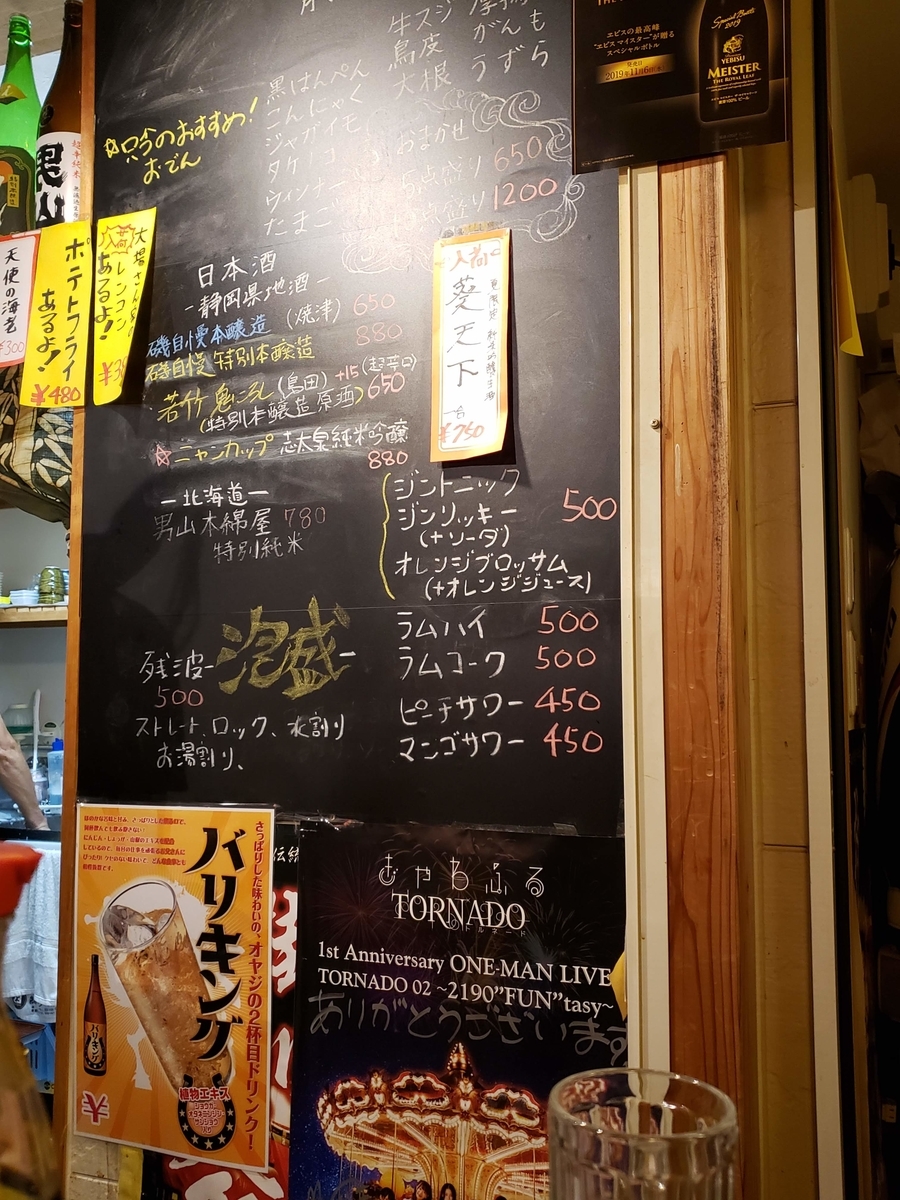 牛スジ
鳥皮 がんも
大根 うずら
黒はんぺん
こんにゃく
ジャガイモ
ウィンナー
たまご
☆只今のおすすめ!
おでん
おまかせ
5点盛り 650
点盛り 1200
エビスの最高峰
"エビス マイスター"が贈る
スペシャルボトル
発売日
2019年11月6日(水)
Special Bottle
2019
YEBISU
MEISTER
THE ROYAL LEAF
天使の海老
¥300
ポテトフライ
あるよ!
¥480
レンコン
あるよ!
入荷
菱天下
一合
¥750
日本酒
-静岡県地酒-
磯自慢本醸造 (焼津) 650
磯自慢 特別本醸造 880
若竹 鬼ころし (島田) +15 (超辛口)
(特別本醸造原酒) 650
☆ニャンカップ 志太泉純米吟醸
880
-北海道-
男山木綿屋 780
特別純米
ジントニック
ジンリッキー 500
(+ソーダ)
オレンジブロッサム
(+オレンジジュース)
ラムハイ 500
ラムコーク 500
ピーチサワー 450
マンゴサワー 450
-泡盛-
残波
500
ストレート、ロック、水割り
お湯割り、
さっぱりした味わいの、オヤジの2杯目ドリンク!
バリキング
バリキング
植物エキス
むやみふる
TORNADO
1st Anniversary ONE-MAN LIVE
TORNADO 02 ~2190"FUN"tasy~
ありがとうございます